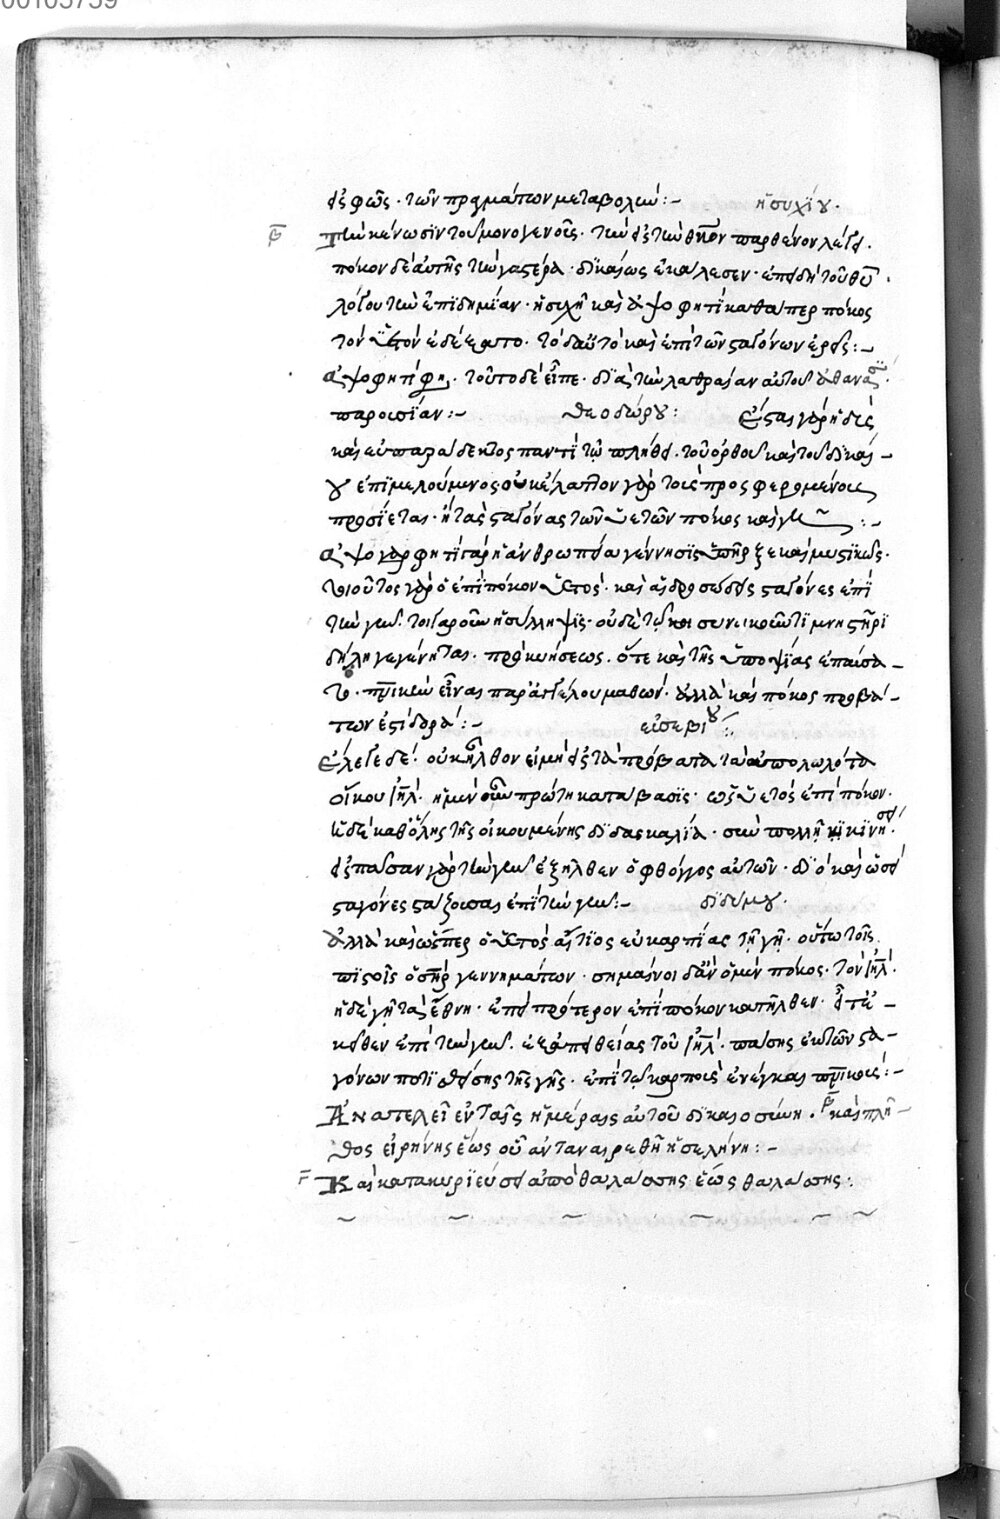 00103759
εἰς φῶς · τῶν πραγμάτων μεταβολήν :– ἡσυχίου ·
β Τὴν κένωσιν τοῦ μονογενοῦς · τὴν εἰς τὴν παρθένον λέγει ·
πόκον δὲ αὐτῆς τὴν γαστέρα · δικαίως ἐκάλεσεν · ἐπειδὴ τοῦ θυ ·
λόγου τὴν ἐπιδημίαν · ἡσυχῆ καὶ ἀψοφητὶ καθάπερ πόκος
τὸν ὑετὸν ἐδέξατο · τὸ δ' αὐτὸ καὶ ἐπὶ τῶν σταγόνων ἐρεῖς :–
ἀψοφητί φη · τοῦτο δὲ εἶπε · διὰ τὴν λαθραίαν αὐτοῦ ἀθανασίου ·
παρουσίαν :– θεοδώρου : ἔσται γὰρ ἡδὺς
καὶ εὐπαράδεκτος παντὶ τῷ πλήθει · τοῦ ὀρθοῦ καὶ τοῦ δικαί–
ου ἐπιμελούμενος οὐκ ἔλαττον γὰρ τοῖς προσφερομένοις
προσίεται · ἢ τὰς σταγόνας τῶν ὑετῶν πόκος καὶ γῆ :–
ἀψοφητὶ γὰρ ἡ ἀνθρωπεία γέννησις ὑπῆρξε καὶ μυστικῶς ·
τοιοῦτος γὰρ ὁ ἐπὶ πόκον ὑετός · καὶ αἱ δροσώδεις σταγόνες ἐπὶ
τὴν γῆν · τοιγαροῦν ἡ σύλληψις · οὐδὲ τῷ συνοικοῦντι μνηστῆρι
δήλη γεγένηται · πρὸ κυήσεως · ὅτε καὶ τῆς ὑποψίας ἐπαύσα–
το · πνικὴν εἶναι παρ' ἀγγέλου μαθών · ἀλλὰ καὶ πόκος προβά–
των ἐστὶ δορά :– εὐσεβίου :
ἔλεγε δέ · οὐκ ἦλθον εἰ μὴ εἰς τὰ πρόβατα τὰ ἀπολωλότα
οἴκου ιηλ · ἡ μὲν οὖν πρώτη κατάβασις · ὡς ὑετὸς ἐπὶ πόκον ·
ἡ δὲ καθ' ὅλης τῆς οἰκουμένης διδασκαλία · σὺν πολλῇ κινήσει ·
εἰς πᾶσαν γὰρ τὴν γῆν ἐξῆλθεν ὁ φθόγγος αὐτῶν · διὸ καὶ ὡσεὶ
σταγόνες στάζουσαι ἐπὶ τὴν γῆν :– διδύμου ·
ἀλλὰ καὶ ὥσπερ ὁ ὑετὸς αἴτιος εὐκαρπίας τῇ γῇ · οὕτω τοῖς
πιστοῖς ὁ σηρ γεννημάτων · σημαίνοι δ' ἂν ὁ μὲν πόκος · τὸν ιηλ ·
ἡ δὲ γῆ τὰ ἔθνη · ἐπεὶ πρότερον ἐπὶ πόκον κατῆλθεν · εἶτ' ἐ–
κεῖθεν ἐπὶ τὴν γῆν · ἐξ ἀπειθείας τοῦ ιηλ · πάσης ἐκ τῶν στα–
γόνων ποτισθείσης τῆς γῆς · ἐπὶ τῷ καρποὺς ἐνέγκαι πνικούς :–
Ἀνατελεῖ ἐν ταῖς ἡμέραις αὐτοῦ δικαιοσύνη · β καὶ πλῆ–
θος εἰρήνης ἕως οὗ ἀνταναιρεθῇ ἡ σελήνη :–
Γ Καὶ κατακυριεύσει ἀπὸ θαλάσσης ἕως θαλάσσης :